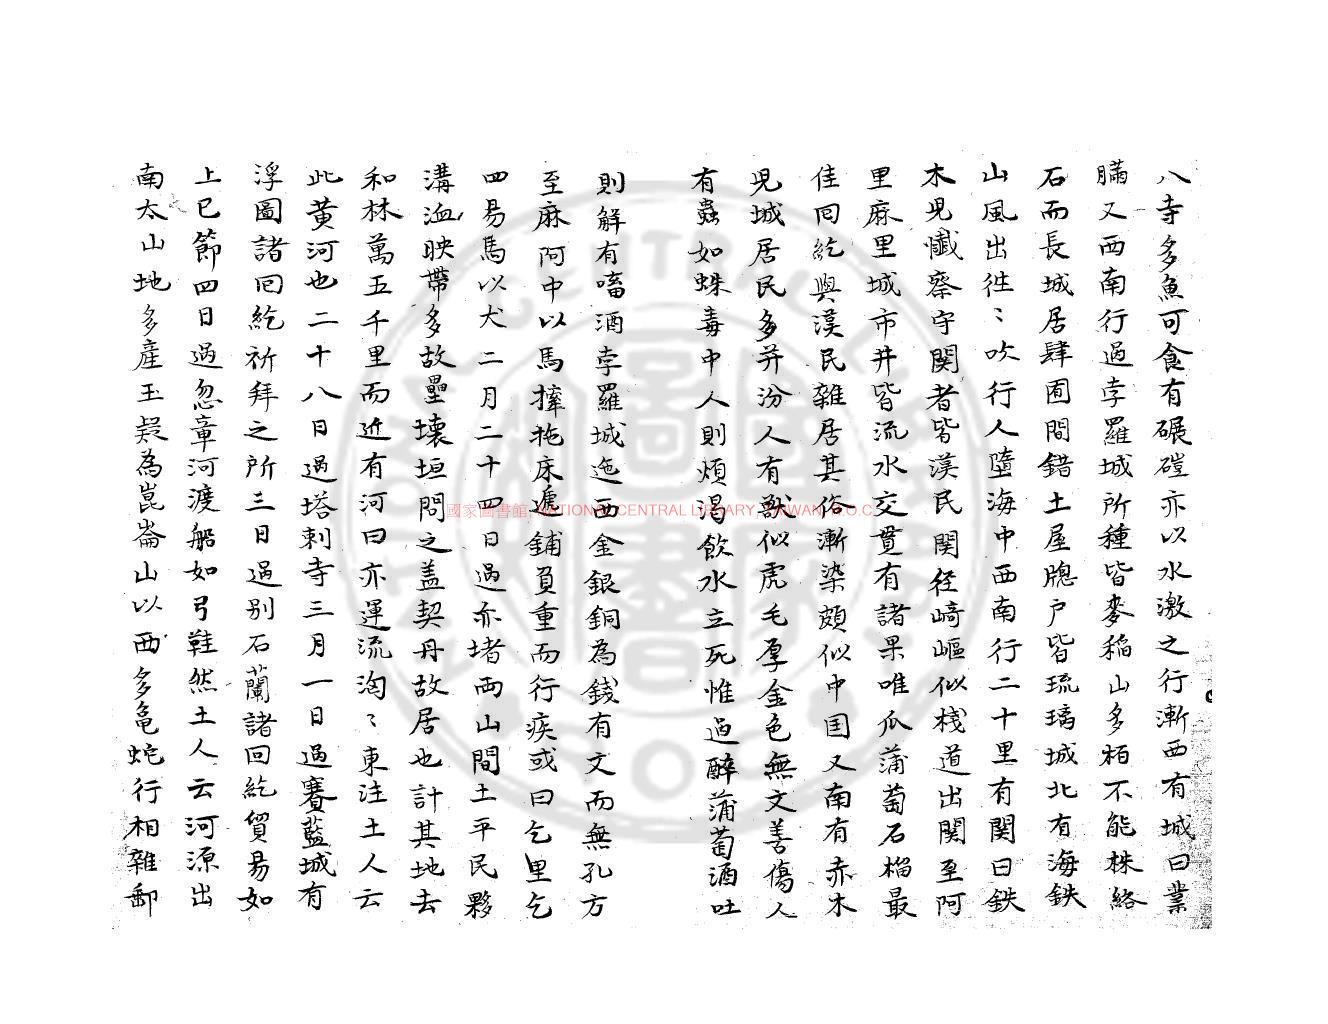 八寺多魚可食有碾磑亦以水激之行漸西有城曰業
瞞又西南行過孛羅城所種皆麥稲山多栢不能株絡
石而長城居肆囿間錯土屋牕户皆琉璃城北有海鉄
山風出往〻吹行人墮海中西南行二十里有関曰鉄
木児懺察守関者皆漢民関径崎嶇似棧道出関至阿
里麻里城市井皆流水交貫有諸果唯瓜蒲萄石榴最
佳回紇與漢民雜居其俗漸染頗似中国又南有赤木
児城居民多并汾人有獸似虎毛厚金色無文善傷人
有蟲如蛛毒中人則煩渇飲水立死惟過醉蒲萄酒吐
則解有㗜酒孛羅城迤西金銀銅為錢有文而無孔方
至麻阿中以馬摔拖床遞鋪負重而行疾或曰乞里乞
四易馬以犬二月二十四日過亦堵两山間土平民夥
溝洫映帶多故壘壊垣問之盖契丹故居也計其地去
和林萬五千里而近有河曰亦運流洶〻東注土人云
此黄河也二十八日過塔剌寺三月一日過賽藍城有
浮圖諸回紇祈拜之所三日過别石蘭諸回紇貿易如
上巳節四日過忽章河渡船如弓鞋然土人云河源出
南太山地多産玉疑為崑崙山以西多龟蛇行相雜郵
國家圖書館 NATIONAL CENTRAL LIBRARY, TAIWAN, R.O.C.